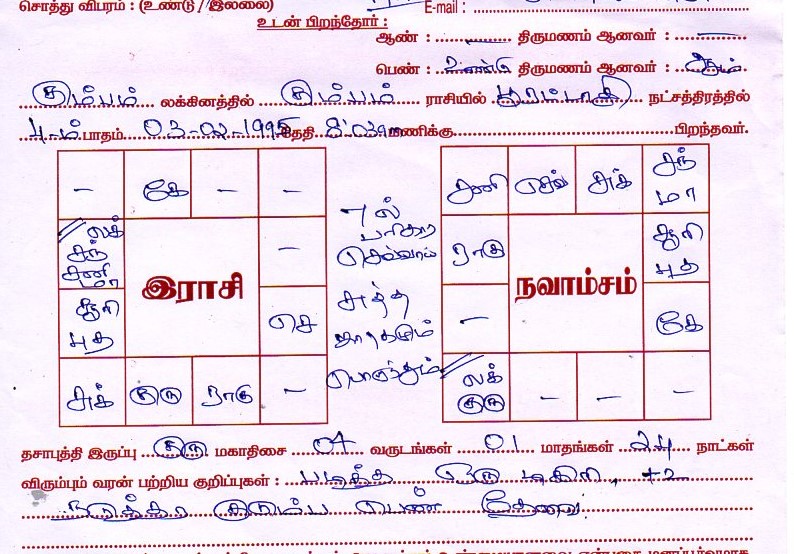 சொத்து விபரம் : (உண்டு / இல்லை) E-mail :
உடன் பிறந்தோர் :
ஆண் : — திருமணம் ஆனவர் : —
பெண் : உண்டு திருமணம் ஆனவர் : ஆம்
கும்பம் லக்கினத்தில் கும்பம் ராசியில் பூரட்டாதி நட்சத்திரத்தில்
4-ம் பாதம் 03-02-1995 தேதி 8.03 மணிக்கு பிறந்தவர்.
— கே — —
லக் சந் சனி மா —
சூரி புத செ
சுக் குரு ராகு —
இராசி
7ல்
பரிகார
செவ்வாய்
சுத்த
ஜாதகமும்
பொருந்தும்
சனி செவ் சுக் சந் மா
ராகு சூரி புத
— கே
லக் குரு — — —
நவாம்சம்
தசாபுத்தி இருப்பு குரு மகாதிசை 04 வருடங்கள் 01 மாதங்கள் 24 நாட்கள்
விரும்பும் வரன் பற்றிய குறிப்புகள் : படித்த ஒரு டிகிரி, +2
குடும்ப பெண் தேவை